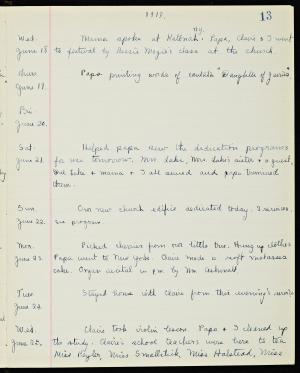 1919.
13
Wed.
June 18.
Mama spoke at Katonah, N.Y. Papa, Claire & I went
to festival by Bessie Mozie's class at the church.
Thurs.
June 19.
Papa printing words of cantata "Daughter of Jairus".
Fri.
June 20.
Sat.
June 21.
Helped papa sew the dedication programs
for use tomorrow. Mr. Lake, Mrs. Lake's sister & a guest,
& mama & I all sewed and papa trimmed
them.
Sun.
June 22.
Our new church edifice dedicated today. 3 services,
see program.
Mon.
June 23.
Picked cherries from our little tree. Hung up clothes
Papa went to New York. Claire made a molasses
cake. Organ recital in p.m. by Mr.
Tues.
June 24.
Stayed home with Claire from this evening's service
Wed.
June 25.
Claire took violin lesson. Papa & I cleaned up
the study. Claire's school teachers were here to tea
Miss Miss Smallstick, Miss Halstead, Miss